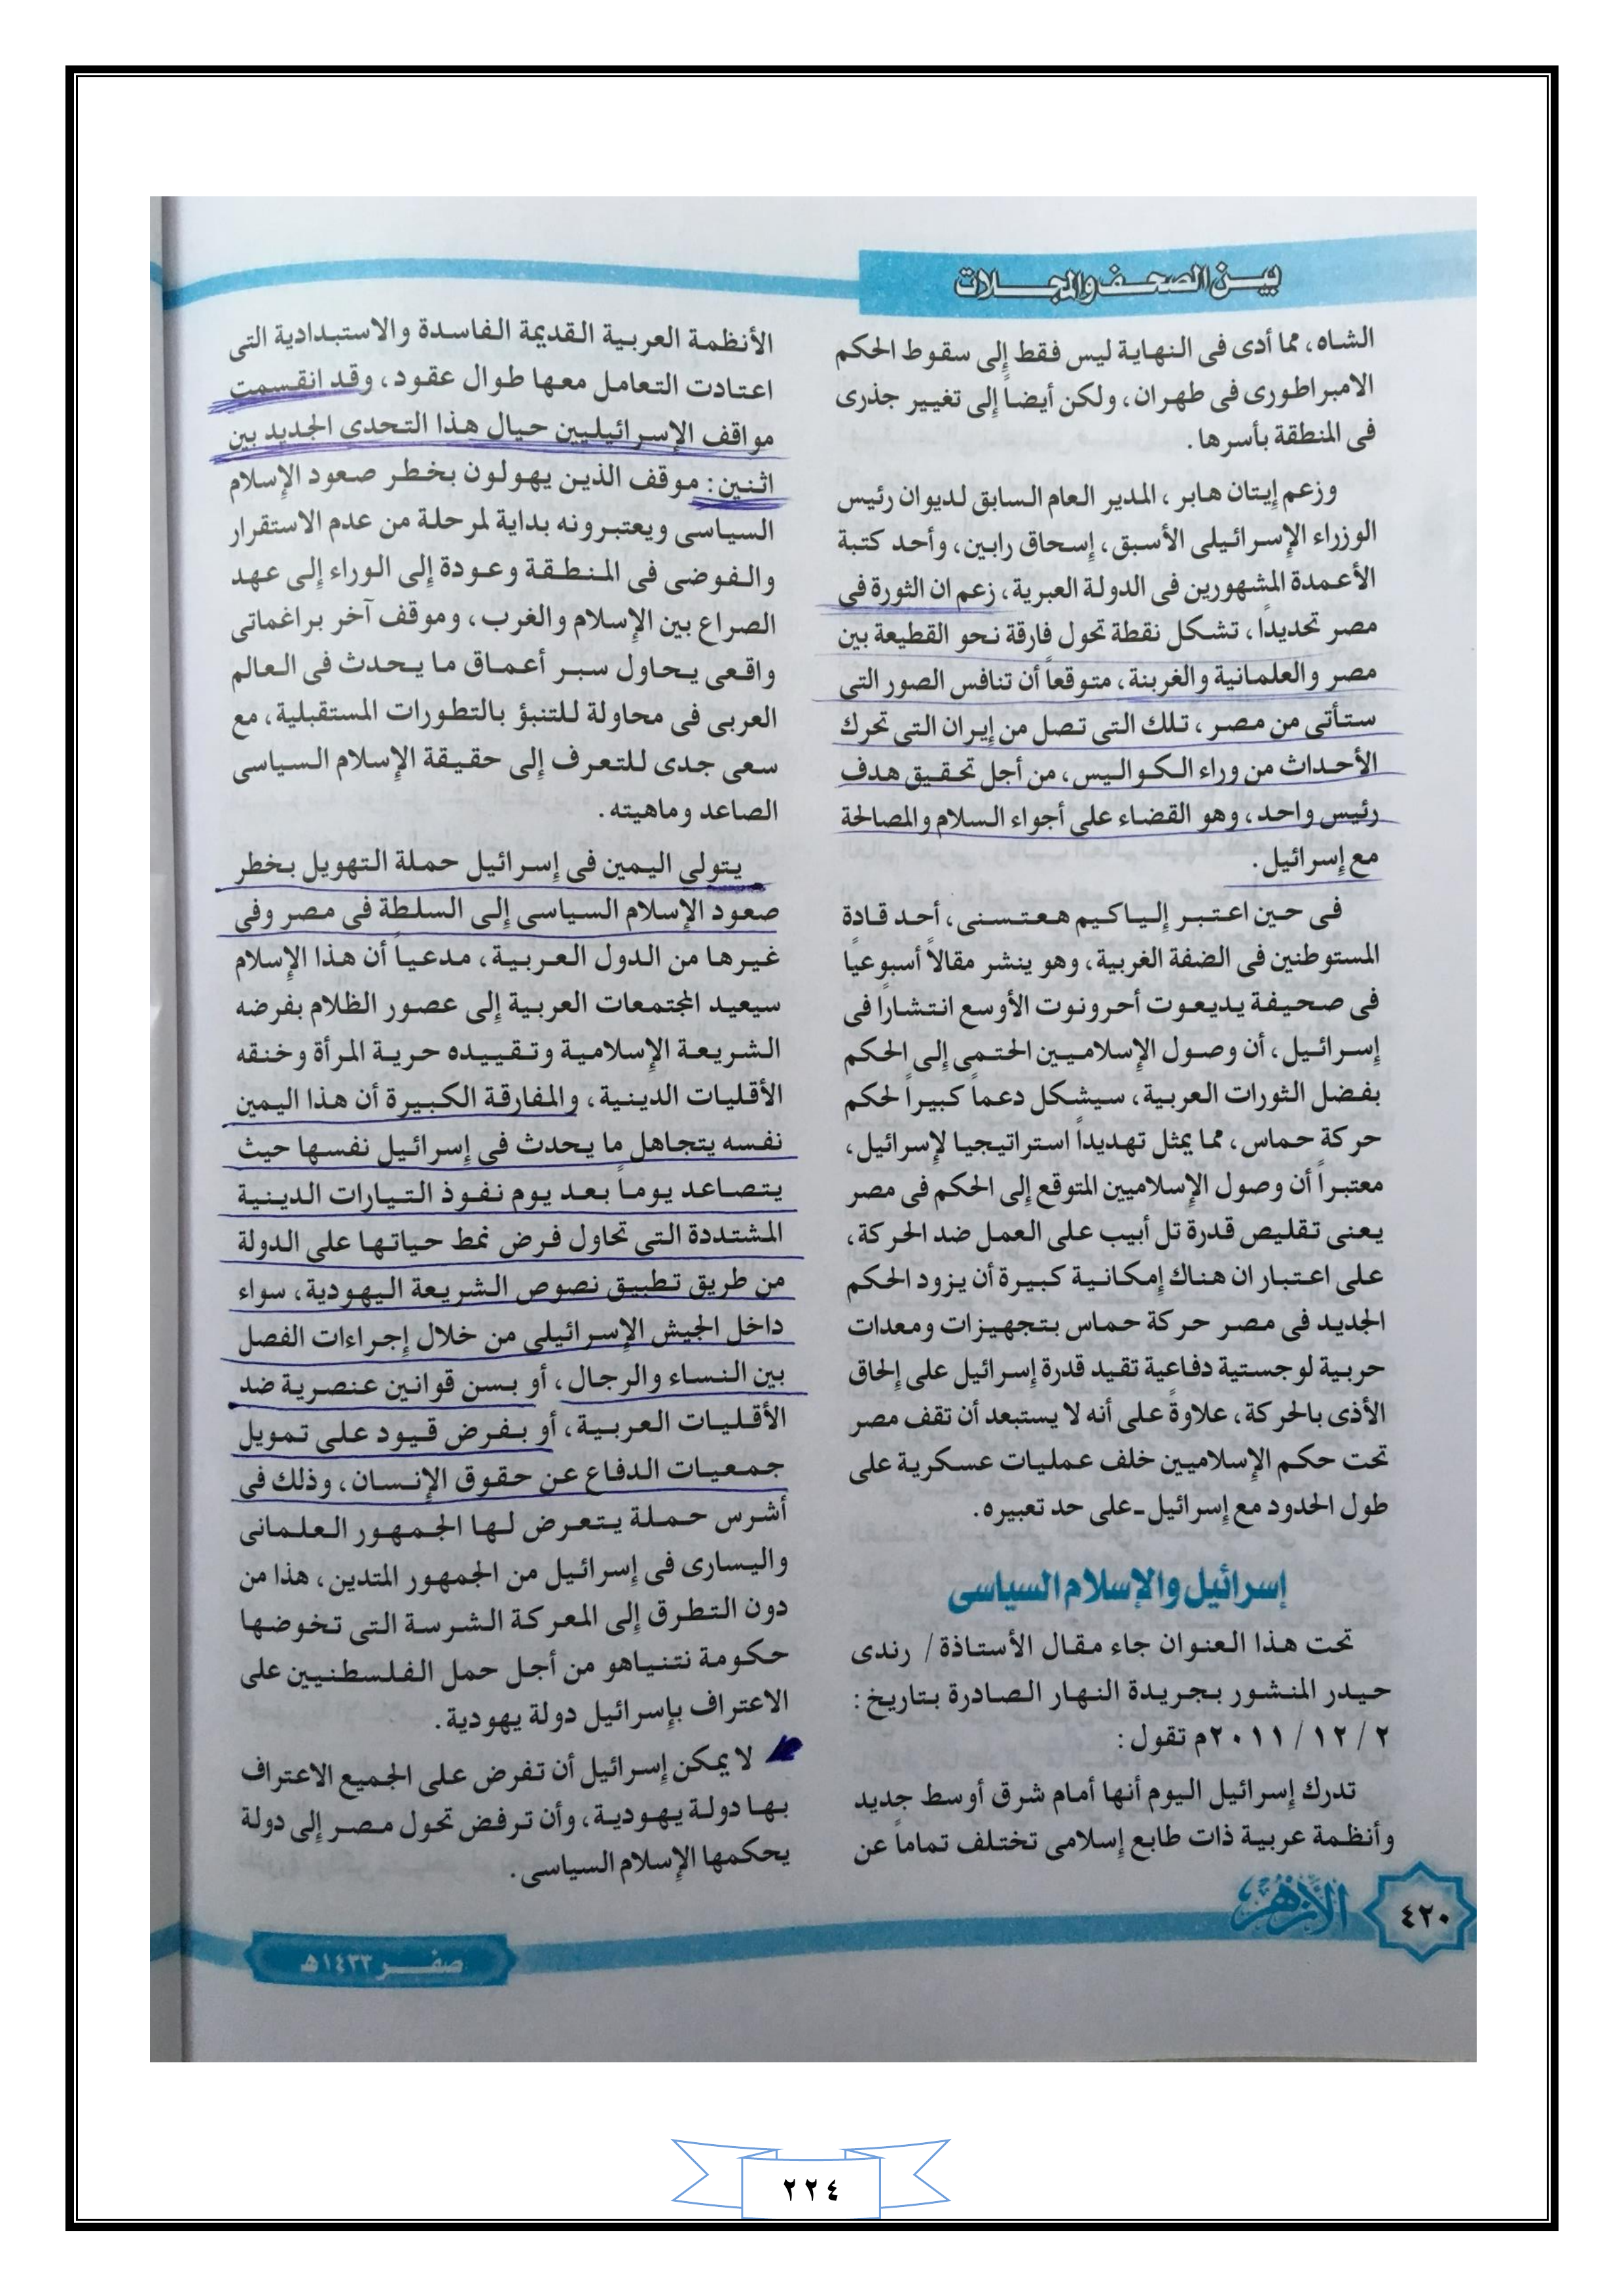 بين الصحف والمجلات
الشاه، مما أدى فى النهاية ليس فقط إلى سقوط الحكم
الامبراطورى فى طهران، ولكن أيضاً إلى تغيير جذرى
فى المنطقة بأسرها.
وزعم إيتان هابر، المدير العام السابق لديوان رئيس
الوزراء الإسرائيلى الأسبق، إسحاق رابين، وأحد كتبة
الأعمدة المشهورين فى الدولة العبرية، زعم ان الثورة فى
مصر تحديداً، تشكل نقطة تحول فارقة نحو القطيعة بين
مصر والعلمانية والغربنة، متوقعاً أن تنافس الصور التى
ستأتى من مصر، تلك التى تصل من إيران التى تحرك
الأحداث من وراء الكواليس، من أجل تحقيق هدف
رئيس واحد، وهو القضاء على أجواء السلام والمصالحة
مع إسرائيل.
فى حين اعتبر إلياكيم هعتسنى، أحد قادة
المستوطنين فى الضفة الغربية، وهو ينشر مقالاً أسبوعياً
فى صحيفة يديعوت أحرونوت الأوسع انتشارًا فى
إسرائيل، أن وصول الإسلاميين الحتمى إلى الحكم
بفضل الثورات العربية، سيشكل دعماً كبيراً لحكم
حركة حماس، مما يمثل تهديداً استراتيجيا لإسرائيل،
معتبراً أن وصول الإسلاميين المتوقع إلى الحكم فى مصر
يعنى تقليص قدرة تل أبيب على العمل ضد الحركة،
على اعتبار ان هناك إمكانية كبيرة أن يزود الحكم
الجديد فى مصر حركة حماس بتجهيزات ومعدات
حربية لوجستية دفاعية تقيد قدرة إسرائيل على إلحاق
الأذى بالحركة، علاوةً على أنه لا يستبعد أن تقف مصر
تحت حكم الإسلاميين خلف عمليات عسكرية على
طول الحدود مع إسرائيل ـ على حد تعبيره.
إسرائيل والإسلام السياسى
تحت هذا العنوان جاء مقال الأستاذة/ رندى
حيدر المنشور بجريدة النهار الصادرة بتاريخ:
٢/ ١٢/ ٢٠١١م تقول:
تدرك إسرائيل اليوم أنها أمام شرق أوسط جديد
وأنظمة عربية ذات طابع إسلامى تختلف تماماً عن
الأنظمة العربية القديمة الفاسدة والاستبدادية التى
اعتادت التعامل معها طوال عقود، وقد انقسمت
مواقف الإسرائيليين حيال هذا التحدى الجديد بين
اثنين: موقف الذين يهولون بخطر صعود الإسلام
السياسى ويعتبرونه بداية لمرحلة من عدم الاستقرار
والفوضى فى المنطقة وعودة إلى الوراء إلى عهد
الصراع بين الإسلام والغرب، وموقف آخر براغماتى
واقعى يحاول سبر أعماق ما يحدث فى العالم
العربى فى محاولة للتنبؤ بالتطورات المستقبلية، مع
سعى جدى للتعرف إلى حقيقة الإسلام السياسى
الصاعد وماهيته.
يتولى اليمين فى إسرائيل حملة التهويل بخطر
صعود الإسلام السياسى إلى السلطة فى مصر وفى
غيرها من الدول العربية، مدعياً أن هذا الإسلام
سيعيد المجتمعات العربية إلى عصور الظلام بفرضه
الشريعة الإسلامية وتقييده حرية المرأة وخنقه
الأقليات الدينية، والمفارقة الكبيرة أن هذا اليمين
نفسه يتجاهل ما يحدث فى إسرائيل نفسها حيث
يتصاعد يوماً بعد يوم نفوذ التيارات الدينية
المشتددة التى تحاول فرض نمط حياتها على الدولة
من طريق تطبيق نصوص الشريعة اليهودية، سواء
داخل الجيش الإسرائيلى من خلال إجراءات الفصل
بين النساء والرجال، أو بسن قوانين عنصرية ضد
الأقليات العربية، أو بفرض قيود على تمويل
جمعيات الدفاع عن حقوق الإنسان، وذلك فى
أشرس حملة يتعرض لها الجمهور العلمانى
واليسارى فى إسرائيل من الجمهور المتدين، هذا من
دون التطرق إلى المعركة الشرسة التى تخوضها
حكومة نتنياهو من أجل حمل الفلسطنيين على
الاعتراف بإسرائيل دولة يهودية.
لا يمكن إسرائيل أن تفرض على الجميع الاعتراف
بها دولة يهودية، وأن ترفض تحول مصر إلى دولة
يحكمها الإسلام السياسى.
٤٢٠
الأزهر
صفر ١٤٣٣هـ
٢٢٤